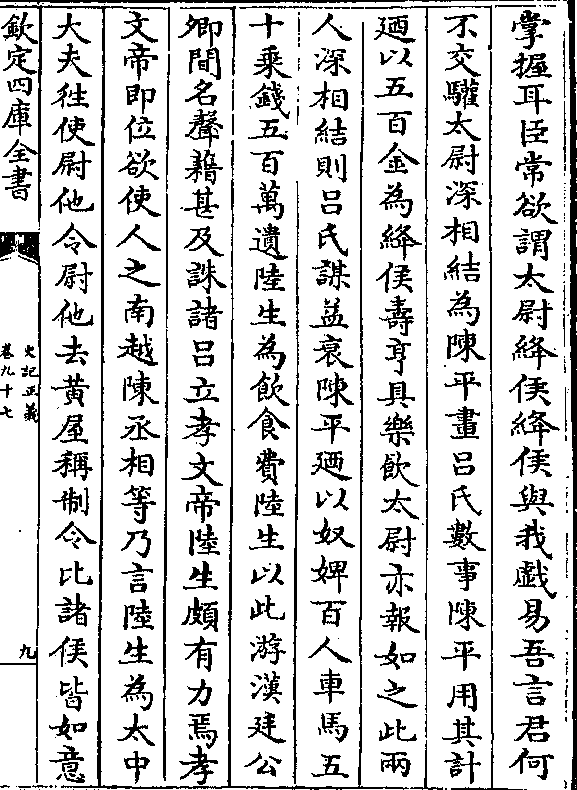 掌握耳臣常欲謂太尉絳侯絳侯與我戯易吾言君何
不交驩太尉深相結為陳平畫吕氏數事陳平用其計
廼以五百金為絳侯壽亨具樂飲太尉亦報如之此兩
人深相結則吕氏謀益衰陳平廼以奴婢百人車馬五
十乗錢五百萬遺陸生為飲食費陸生以此游漢廷公
卿間名聲藉甚及誅諸吕立孝文帝陸生頗有力焉孝
文帝即位欲使人之南越陳丞相等乃言陸生為太中
大夫往使尉他令尉他去黄屋稱制令比諸侯皆如意
欽定四庫全書
史記正義
卷九十七
九